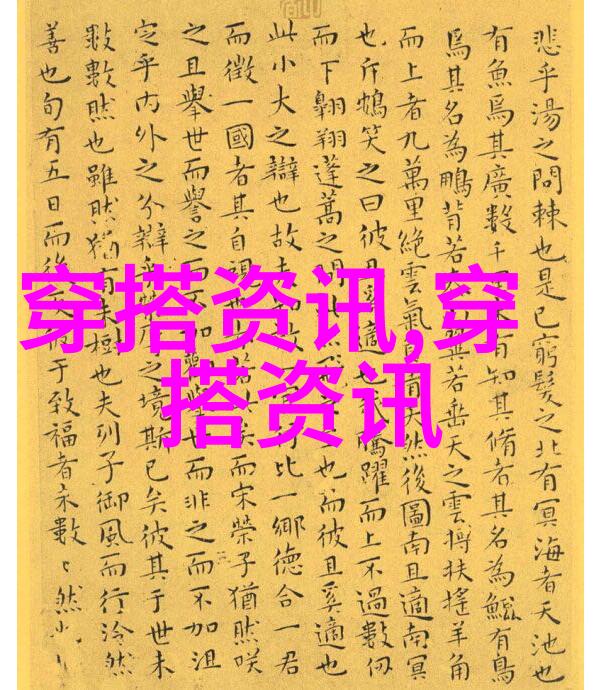 穿搭资讯,穿
搭资讯
悲乎湯之問棘也是已窮髮之北有冥海者天池也
有魚焉其廣數千里未有知其脩者其名為鯤有鳥
焉其名為鵬背若太山翼若垂天之雲摶扶搖羊角
而上者九萬里絕雲氣負青天然後圖南且適南冥
也斥鴳笑之曰彼且奚適也我騰躍而上不過數仞
而下翱翔蓬蒿之間此亦飛之至也而彼且奚適也
此小大之辯也故夫知效一官行比一鄉德合一君
而徵一國者其自視也亦若此矣而宋榮子猶然咲
之且舉世而譽之而不加勸舉世而非之而不加沮
定乎內外之分辯乎榮辱之境斯已矣彼其于世未
數數然也雖然猶有未樹也夫列子御風而行泠然
善也旬有五日而後反彼于致福者未數〻然也